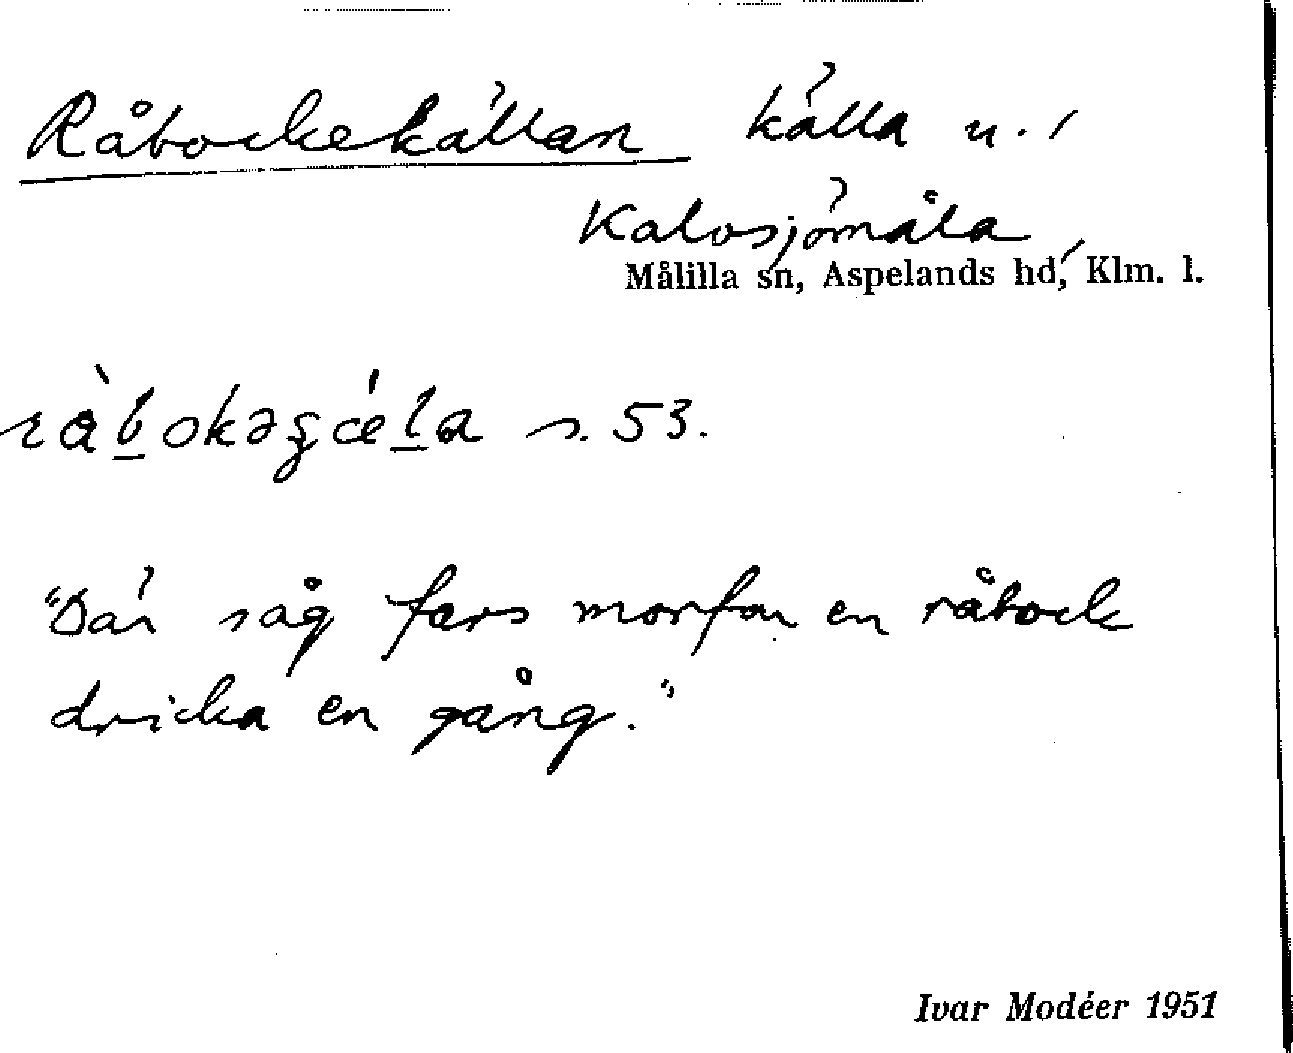 Råbockekällan källa u. /
Kalvsjömåla,
Målilla sn, Aspelands hd, Klm. l.
s. 53.
"Där såg fars morfar en råbock
dricka en gång."
Ivar Modéer 1951